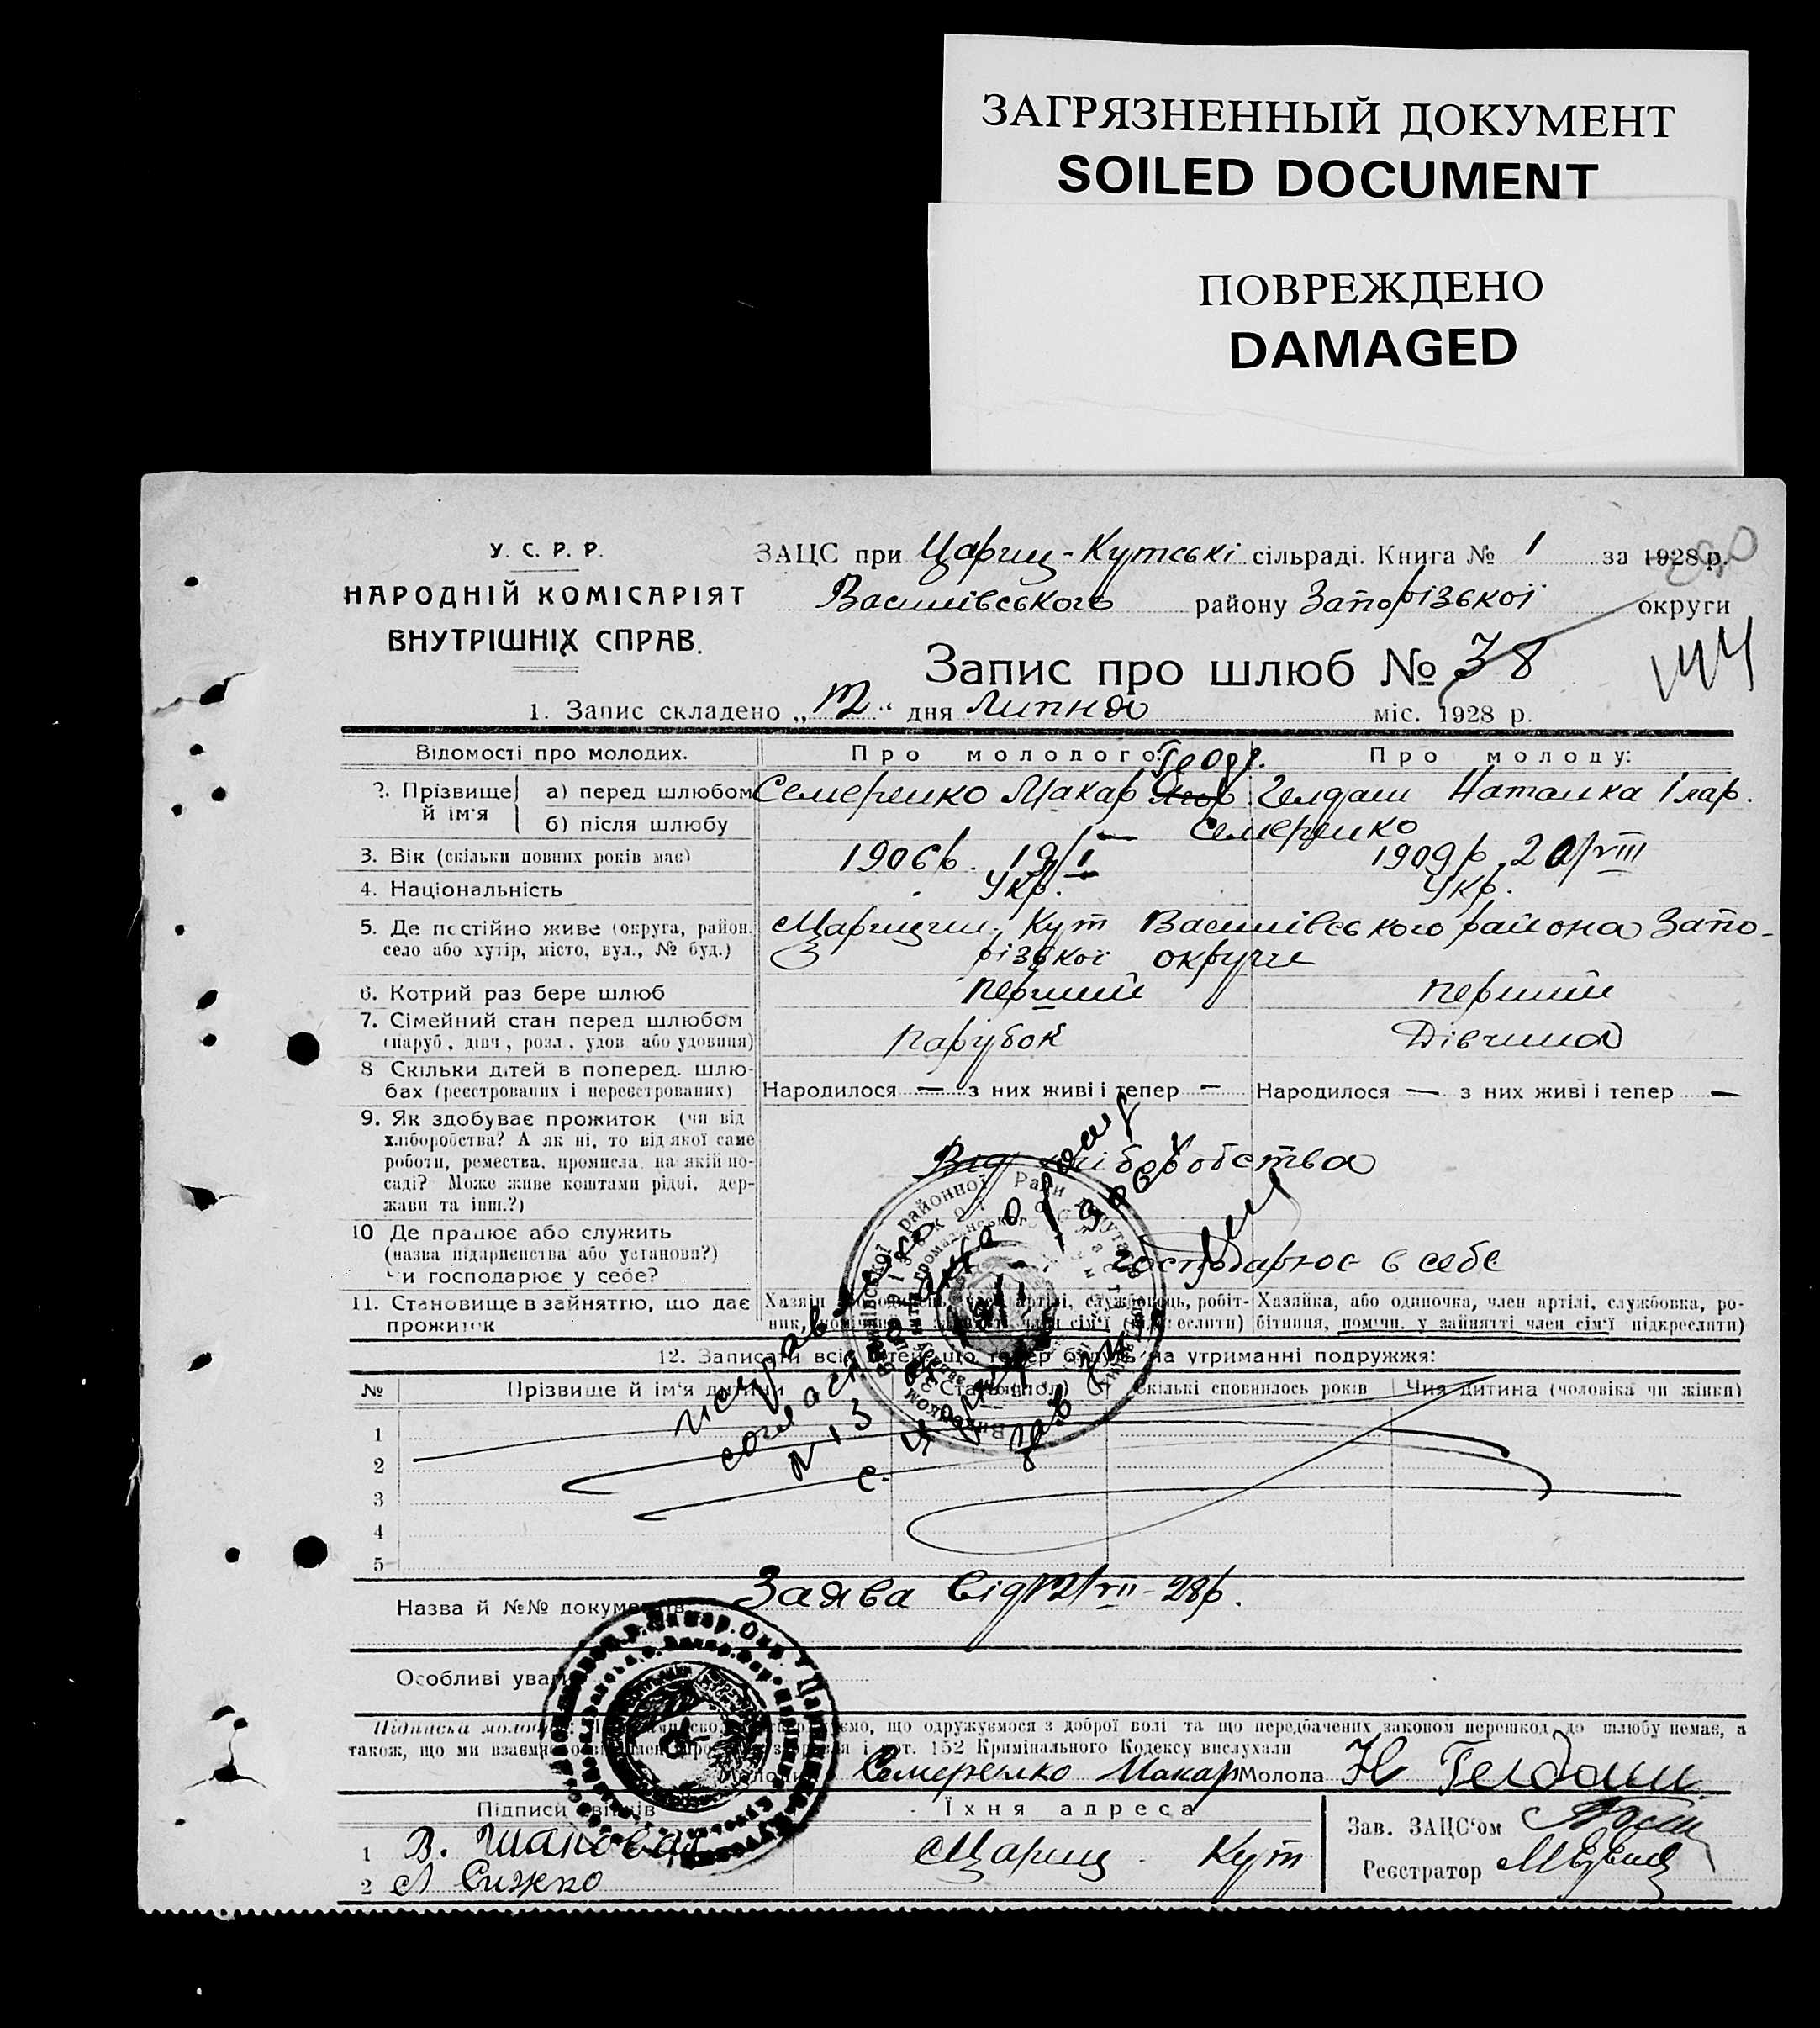 ЗАГРЯЗНЕННЫЙ ДОКУМЕНТ
SOILED DOCUMENT
ПОВРЕЖДЕНО
DAMAGED
У. С. Р. Р.
НАРОДНІЙ КОМІСАРІЯТ
ВНУТРІШНІХ СПРАВ.
ЗАЦС при Цариц-Кутські сільраді. Книга № 1 за 1928 р.
Василівського району Запорізької округи
Запис про шлюб № 38
144
1. Запис складено „12“ дня Липня міс. 1928 р.
Відомості про молодих. Про молодого: Про молоду:
Теодр.
2. Прізвище й ім'я а) перед шлюбом Семеренко Макар Ягор Гелдаш Наталка Ілар.
б) після шлюбу — Семеренко
3. Вік (скільки повних років має) 1906 р. 19/I 1909 р. 20/VIII
4. Національність Укр. Укр.
5. Де постійно живе (округа, район, Царицин Кут Василівського района Запо-
село або хутір, місто, вул., № буд.) різької округи
6. Котрий раз бере шлюб перший перший
7. Сімейний стан перед шлюбом
(паруб., дівч., розл., удов. або удовиця) Парубок Дівчина
8 Скільки дітей в поперед. шлю-
бах (реєстрованих і нереєстрованих) Народилося — з них живі і тепер — Народилося — з них живі і тепер —
9. Як здобуває прожиток (чи від
хліборобства? А як ні, то від якої саме
роботи, ремества, промисла, на якій по- Від хліборобства
саді? Може живе коштами рідні, дер-
жави та інш.?)
10 Де працює або служить
(назва підприємства або установи?) господарює в себе
Чи господарює у себе?
11. Становище в зайняттю, що дає Хазяїн, артілі, службовець, робіт- Хазяйка, або одиночка, член артілі, службовка, ро-
прожиток член сім'ї бітниця, помічн. у зайнятті член сім'ї підкреслити)
12. Записати всіх дітей, що тепер будуть на утриманні подружжя:
№ Прізвище й ім'я дитини Скількі сповнилось років Чия дитина (чоловіка чи жінки)
1
2
3
4
5
Назва й №№ документів Заява від 12/VII-28р.
Особливі уваги
Підписка молодих: що одружуємося з доброї волі та що передбачених законом перешкод до шлюбу немає, а
також, що ми взаємно і арт. 152 Кримінального Кодексу вислухали
Семеренко Макар Молода Н Гелдаш
Підписи свідків Їхня адреса Зав. ЗАЦС'ом
1 В. Шаповал Цариц. Кут
2 Л Сижко Реєстратор